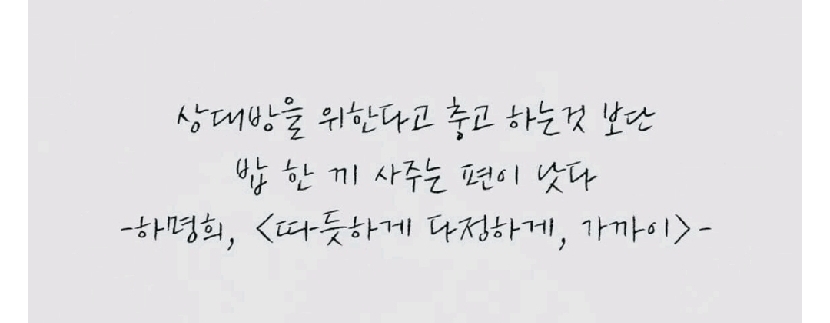 상대방을 위한다고 충고 하는것 보단
밥 한 끼 사주는 편이 낫다
-하명희, <따뜻하게 다정하게, 가까이>-